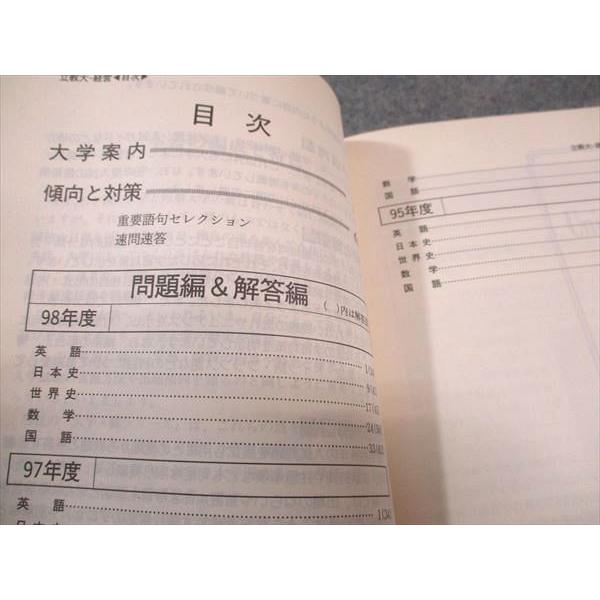 立教大-経営◀目次▶
目次
大学案内
傾向と対策
重要語句セレクション
速問速答
問題編&解答編
( )内は解答
98年度
英語 1(34)
日本史 9(
世界史 17(
数学 24(
国語 33(
97年度
英語 1(34)
日本史
立教大-
数学
国語
95年度
英語
日本史
世界史
数学
国語